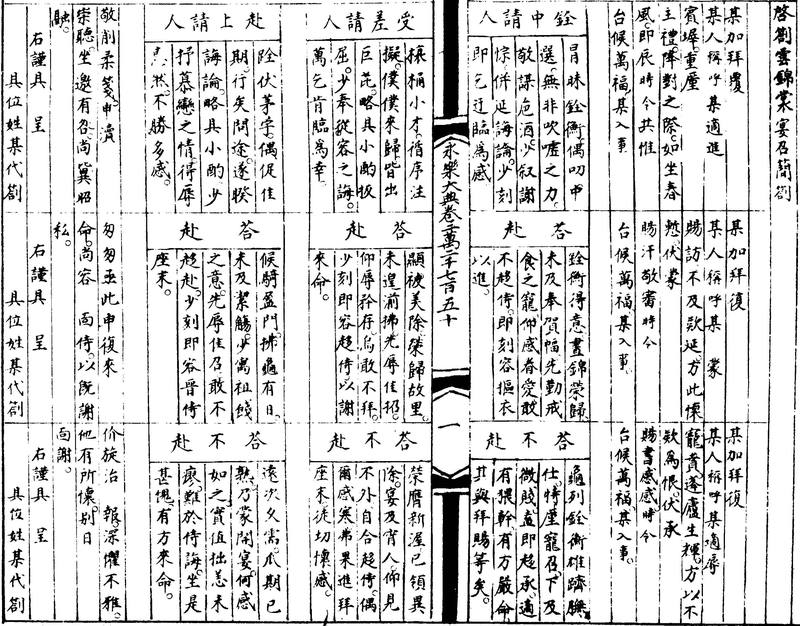 啓劄雲錦裳宴召簡劄
某加拜覆
某人稱呼某適進
賓墀重塵
主禮降對之際。如坐春
風。即辰時令共惟
台候萬福。某入事
銓中請人
冐昧銓衡偶叨中
選。無非吹噓之力。
敬謀危酒。少叙謝
悰。併延誨論。少刻
即乞迂臨爲感
某加拜復
某人稱呼某 蒙
賜訪不及欵延。方此懷
慙。伏蒙
賜汗敬審時令
台候萬福。某入事。
答赴
銓衡得意。晝錦榮歸
未及奉賀幅。先勤戒
食之寵。仰感眷愛。敢
不趍侍。即刻容摳衣
以進。
某加拜復
某人稱呼某適辱
寵賁蓬廬生輝。方以不
欵爲恨。伏承
賜書感感時令
台候萬福某入事。
答不赴
龜列銓衡。雄躋膴
仕。特塵寵召。下及
微賤。直即趍承。適
有猥幹。有方嚴命
其興拜賜等矣。
永樂大典卷二萬二千七百五十
一
受差請人
榱桷小才。循序注
擬。僕僕來歸。皆出
巨芘。略具小酌扳
屈。少奉從容之誨。
萬乞肯臨爲幸。
赴上請人
除伏茅孚。偶促佳
期。行矣問途。遂睽
誨論。略具小酌少
抒慕戀之情。得辱
惠然。不勝多感。
敬削柔箋。申瀆
崇聽。坐邀有召。尚冀昭
融。
右謹具 呈
具位姓某代劄
答赴
顯被美除。榮歸故里。
未遑前拂。先辱佳招。
仰辱矜存。烏敢不拜。
少刻即容趍侍。以謝
來命。
答赴
候騎盈門。拂龜有日。
未及潔觴。少寓祖餞
之意。先辱佳召。敢不
趍赴。少刻即容晉侍
座末。
匆匆亟此申復來
命。尚容 面侍。以既謝
私。
右謹具 呈
具位姓某代劄
答不赴
榮膺新渥。已領異
除。宴及宵人。仰見
不外。自合趍侍。偶
爾感寒。弗果進拜
座末。徒切懷感。
答不赴
遠次久需。瓜期已
熟。乃蒙開宴。何感
如之。實值拙恙未
瘳。難於侍誨。坐是
甚愧。有方來命。
价旋治 報。深懼不雅。
他有所懷。別日
面謝。
右謹具 呈
具位姓某代劄